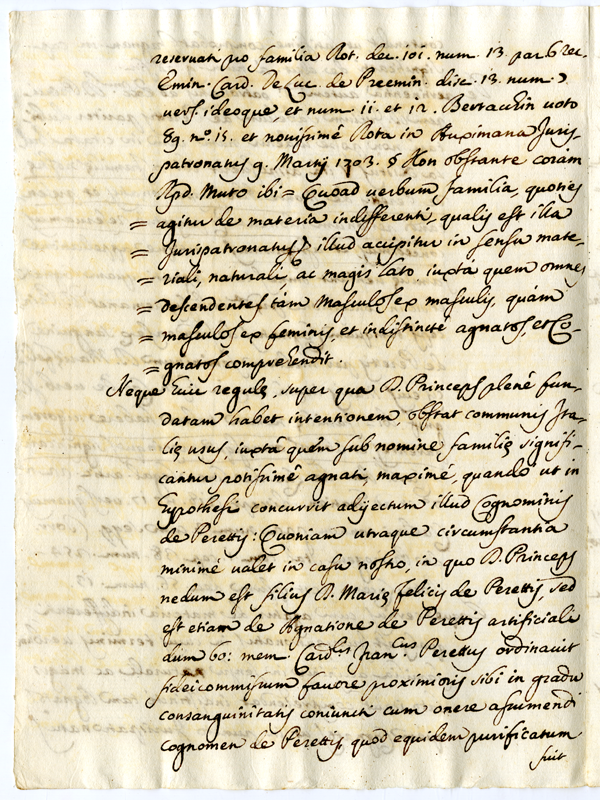 reservati pro familia Rot. dec. 101. num. 13. par 6 rec.
Emin. Card. De Luc. de Preemin. disc. 13. num. 7
vers. ideoque, et num 11. et 12. Bertachin voto
89. nº. 15. et novissimé Rota in Auximana Juris-
patronatus 9. Martij 1703. § Non obstante coram
Rpd. Muto ibi = Quoad verbum familia, quoties
= agitur de materia indifferenti, qualis est illa
= Jurispatronatus, illud accipitur in sensu mate-
= riali, naturali, ac magis lato, iuxta quem omnes
= descendentes tám Masculos ex masculis, quám
= masculos ex feminis, et indistincté agnatos, et Co-
= gnatos comprehendit.
Neque huic regulę, super qua D. Princeps plené fun-
datam habet intentionem, obstat communis Ita-
lię usus, iuxtá quem sub nomine familię signifi-
cantur potissimé agnati, maximé, quando ut in
hypothesi concurrit adjectum illud Cognominis
de Perettis: Quoniam utraque circumstantia
minimé valet in casu nostro, in quo D. Princeps
nedum est filius D. Marię Felicis de Perettis, sed
est etiam de Agnatione de Perettis artificiali
dum bo: mem. Cardlis Francus Perettus ordinavit
fideicommissum favore proximioris sibi in gradu
consanguinitatis coniuncti cum onere assumendi
cognomen de Perettis, quod equidem purificatum
fuit